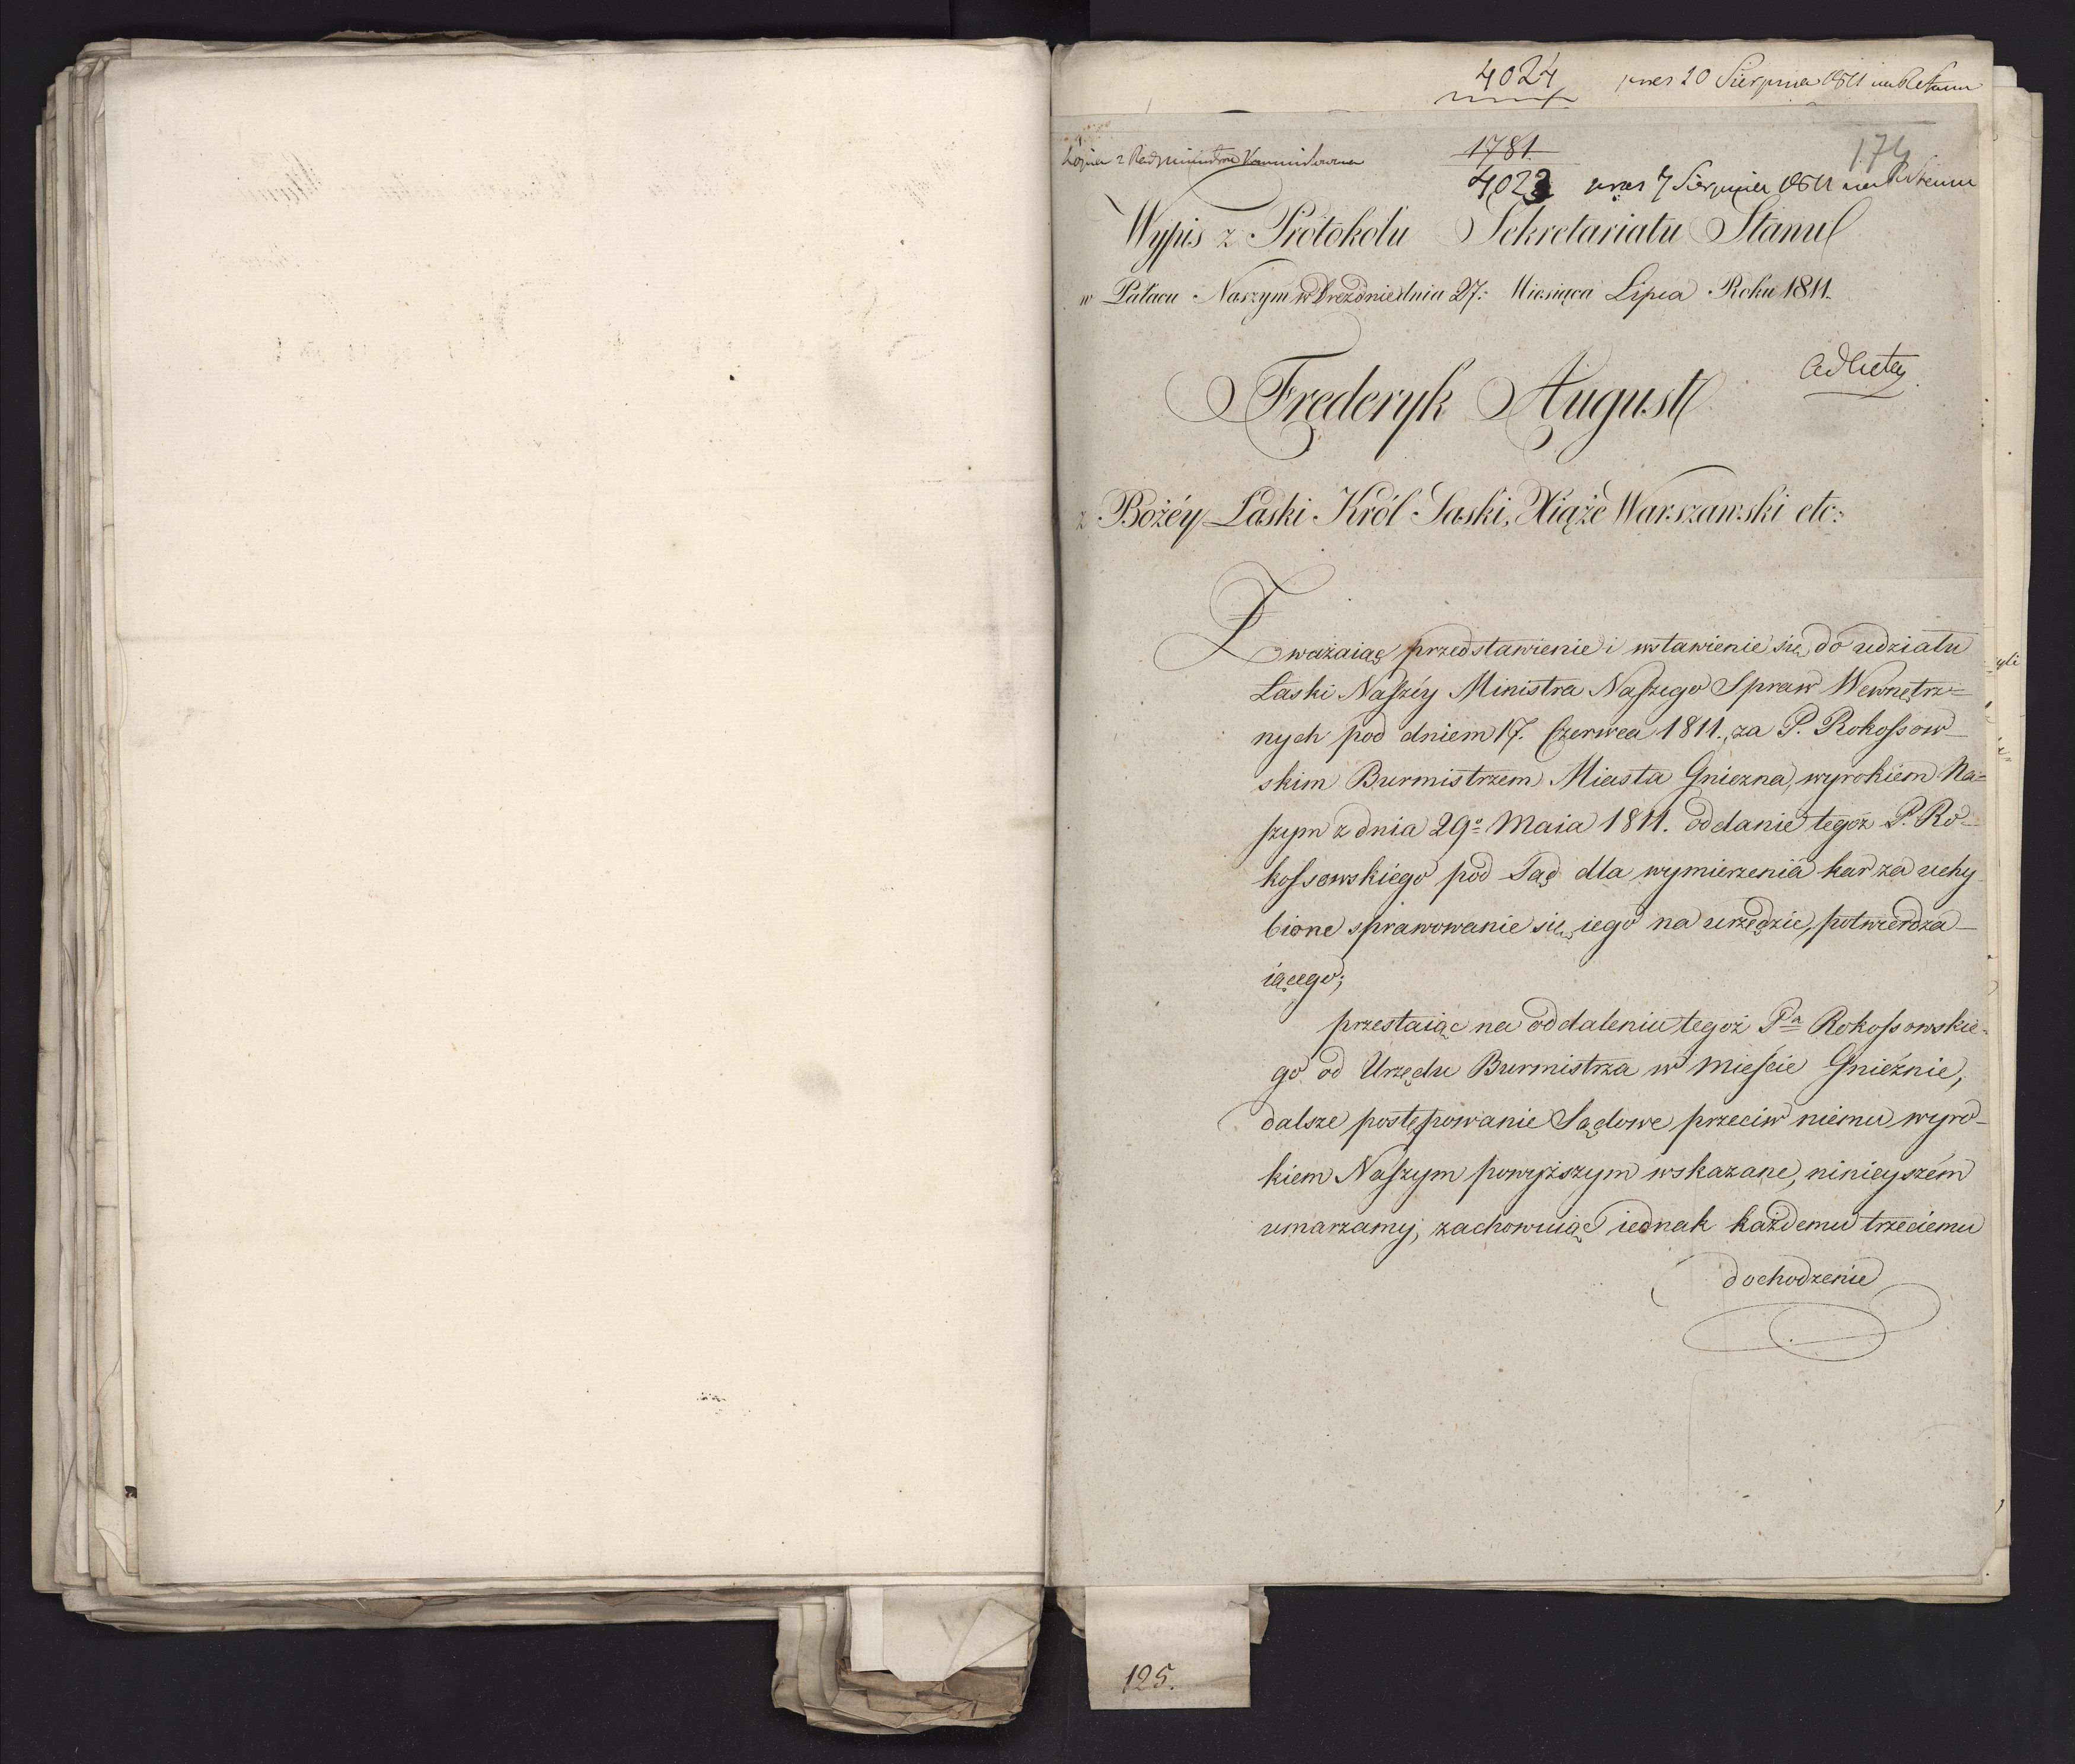 4024 20 Sierpnia 1811
1781
174
4023 7 Sierpnia 1811
Wypis z Protokołu Sekretariatu Stanu
w Pałacu Naszym w Dreźnie dnia 27: Miesiąca Lipca Roku 1811.
Frederyk August
z Bożéy Łaski Król Saski, Xiąże Warszawski etc:
Zważaiąc przedstawienie i wstawienie się do udziału
Łaski Naszéy Ministra Naszego Spraw Wewnętrz=
nych pod dniem 17. Czerwca 1811., za P. Rokossow-
skim Burmistrzem Miasta Gniezna, wyrokiem Na=
szym z dnia 29º Maia 1811. oddanie tegoż P. Ro-
kossowskiego pod Sąd dla wymierzenia kar za uchy
bione sprawowanie się iego na urzędzie, potwierdza-
iącego;
przestaiąc na oddaleniu tegoż Pa Rokossowskie-
go od Urzędu Burmistrza w Mieście Gnieźnie,
dalsze postępowanie Sądowe przeciw niemu wyro-
kiem Naszym powyższym wskazane, ninieyszém
umarzamy; zachowuiąc iednak każdemu trzeciemu
dochodzenie
125.